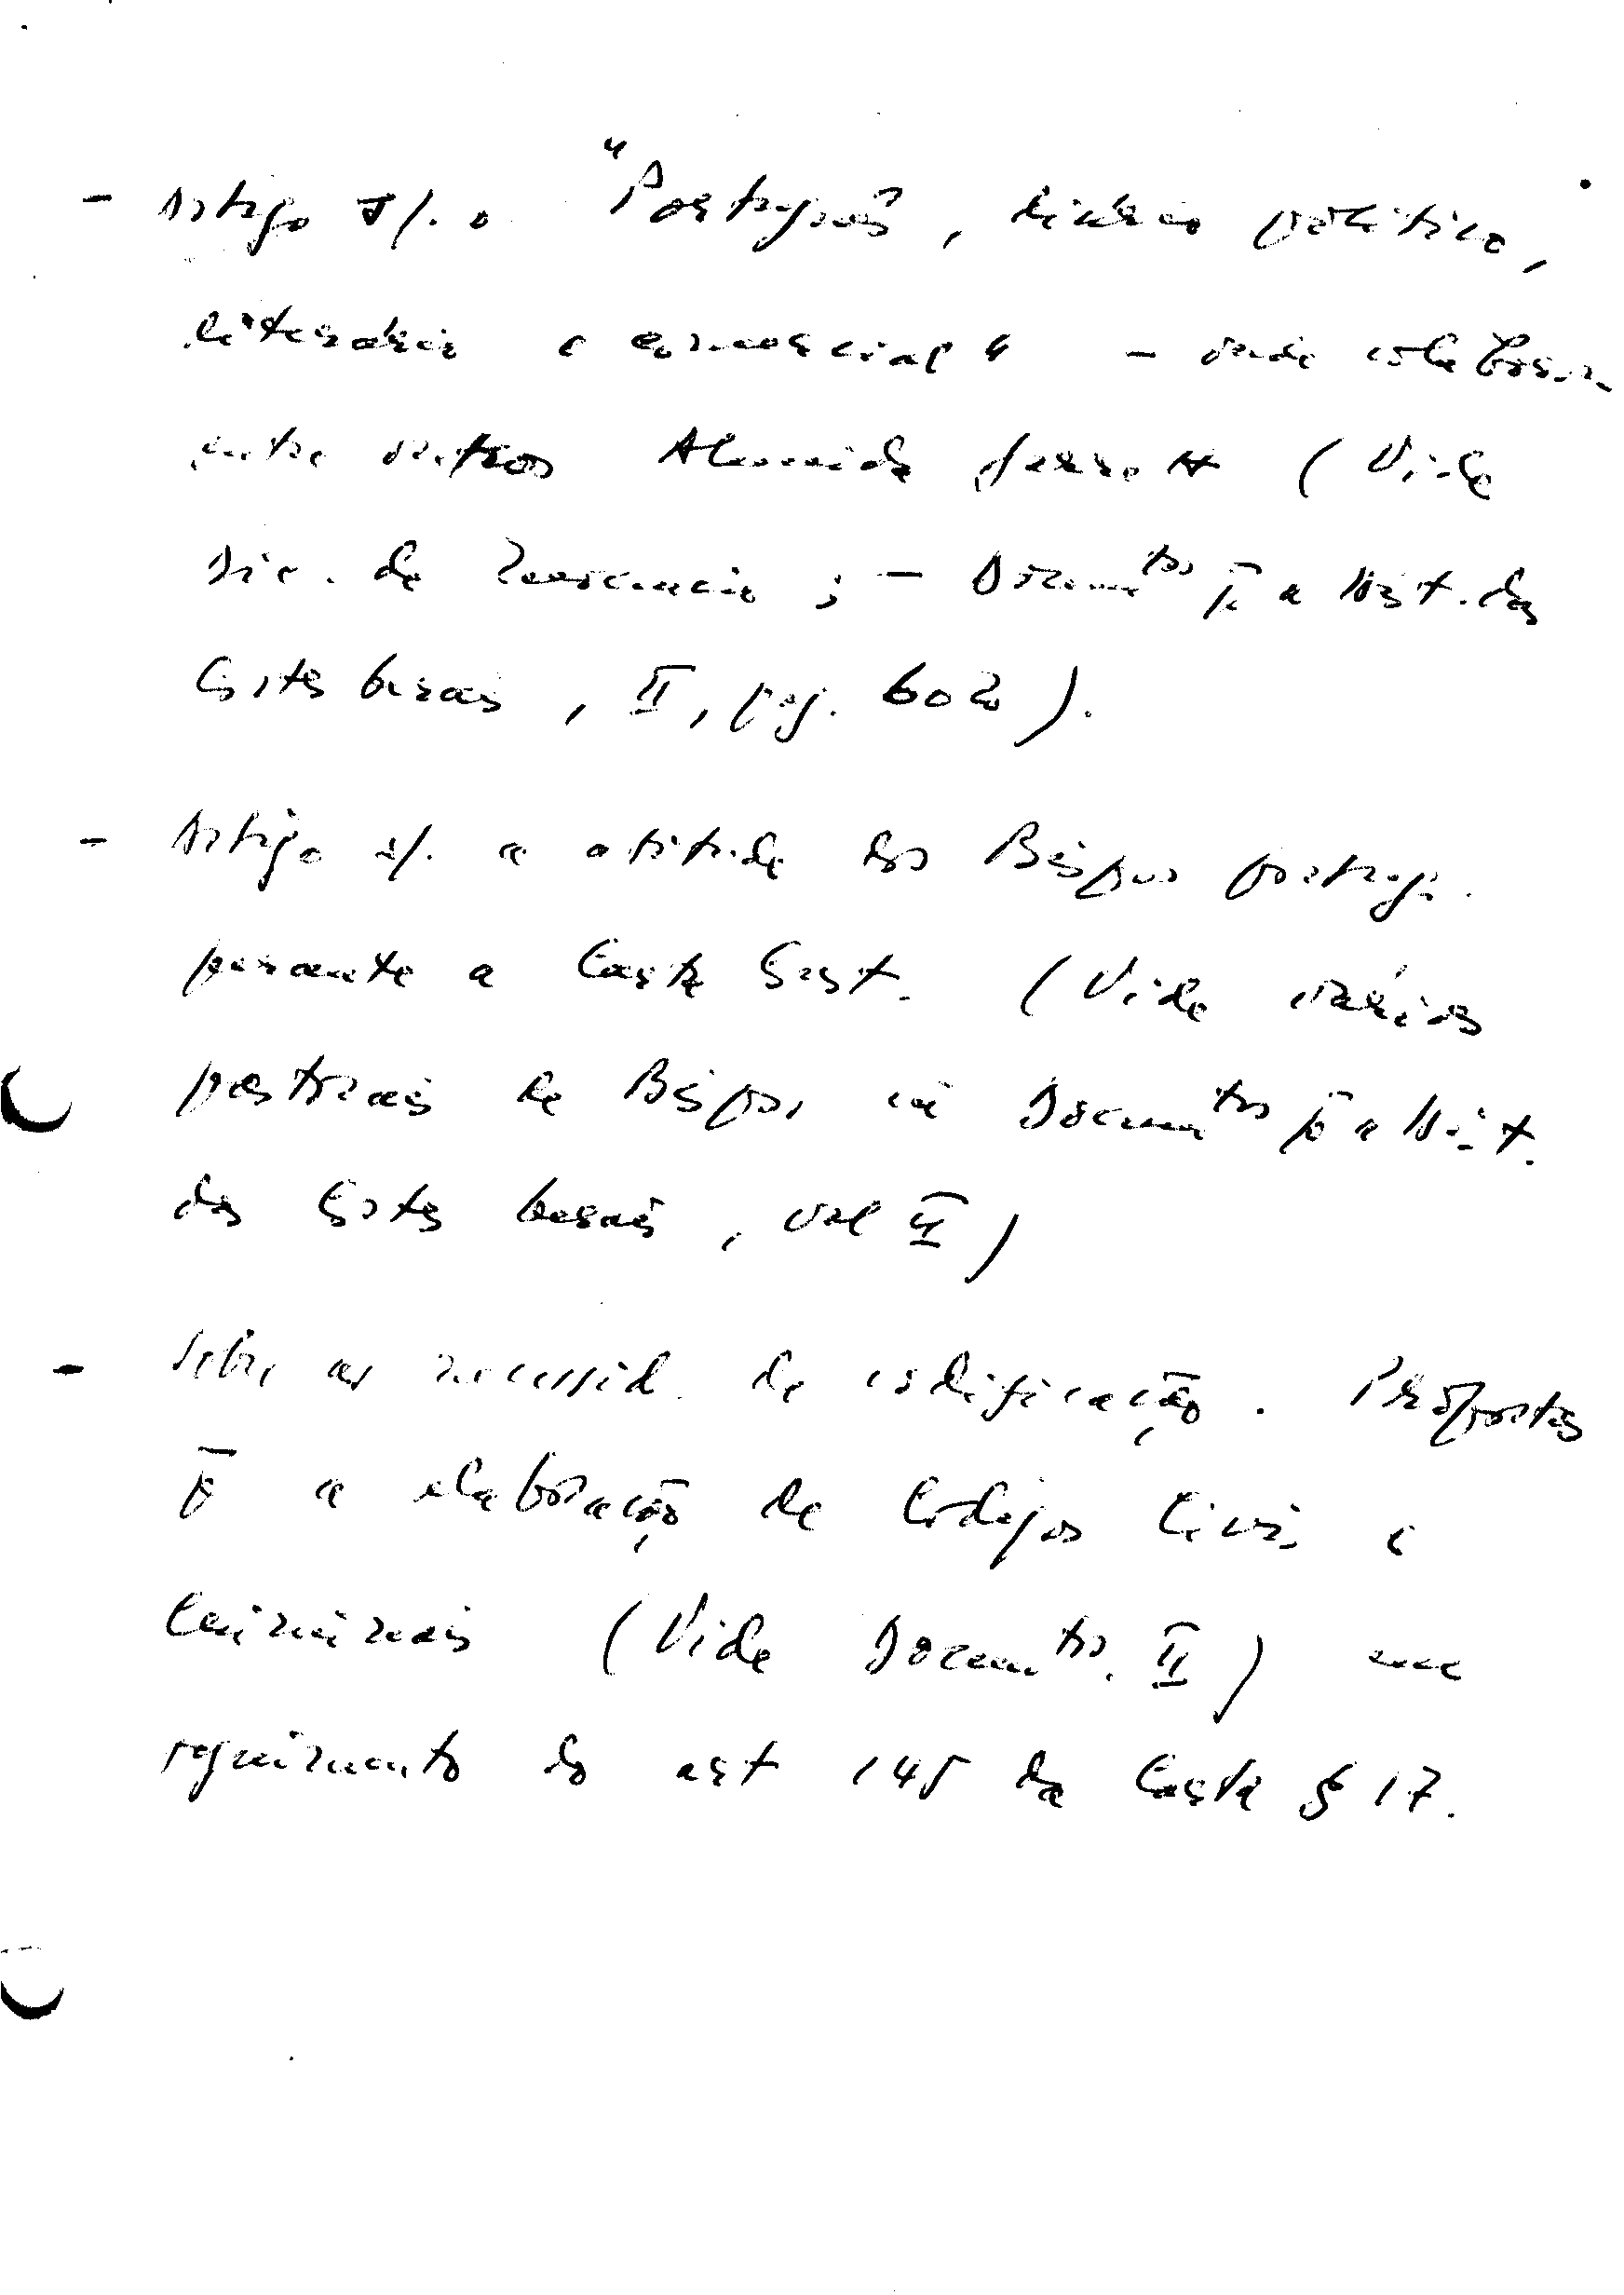 - Artigo s/. o "Portuguès, diário politico,
literário e comercial" - onde colabora
entre outros Almeida Garrett (Vide
Dic. de Inocencio; - Documtos pa a Hist. das
Cortes Gerais, II, pag. 602).
- Artigo s/. a atitude dos Bispos portug.
perante a Carta Const. (Vide várias
pastorais de Bispos in Documtos pa a Hist.
das Cortes Gerais, vol II)
- Sobre as necessid. de codificação. Propostas
pa a elaboração de Codigos Civis e
Criminais (Vide Documtos. II) em
seguimento do art 145 da Carta § 17.